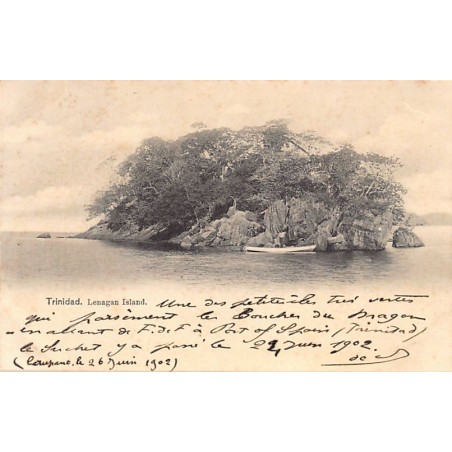 Trinidad. Lenagan Island.
Une des petites îles très vertes
qui parsèment les Bouches du Dragon
en allant de F.d.F à Port of Spain (Trinidad)
le Suchet y a passé le 22 Juin 1902.
(Carupano, le 26 Juin 1902)